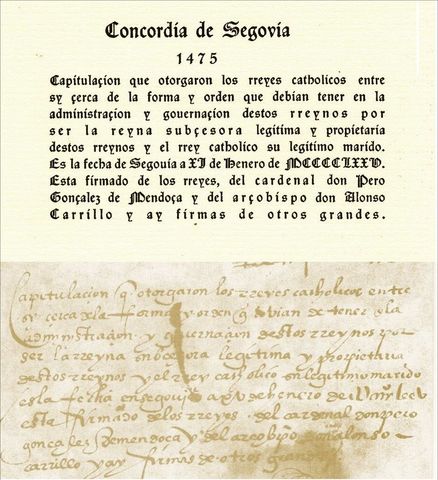 Concordia de Segovia
1475
Capitulaçion que otorgaron los rreyes catholicos entre
sy çerca de la forma y orden que debian tener en la
administraçion y governaçion destos rreynos por
ser la reyna subçesora legitima y propietaria
destos rreynos y el rrey catholico su legitimo marido.
Es la fecha de Segouia a XI de Henero de MCCCCLXXV.
Esta firmado de los rreyes, del cardenal don Pero
Gonçalez de Mendoça y del arçobispo don Alonso
Carrillo y ay firmas de otros grandes.
Capitulacion q otorgaron los rreyes catholicos entre
sy çerca de la forma y orden q debian de tener en la
administraçon y guernaçion destos rreynos por
ser la rreyna subçesora legitima y propietaria
destos rreynos y el rrey catholico su legitimo marido
es la fecha en segouia a de henero de
esta firmado de los rreyes . del cardenal don pero
gonçales de mendoça y del arcobispo don alonso
carrillo y ay firmas de otros grandes